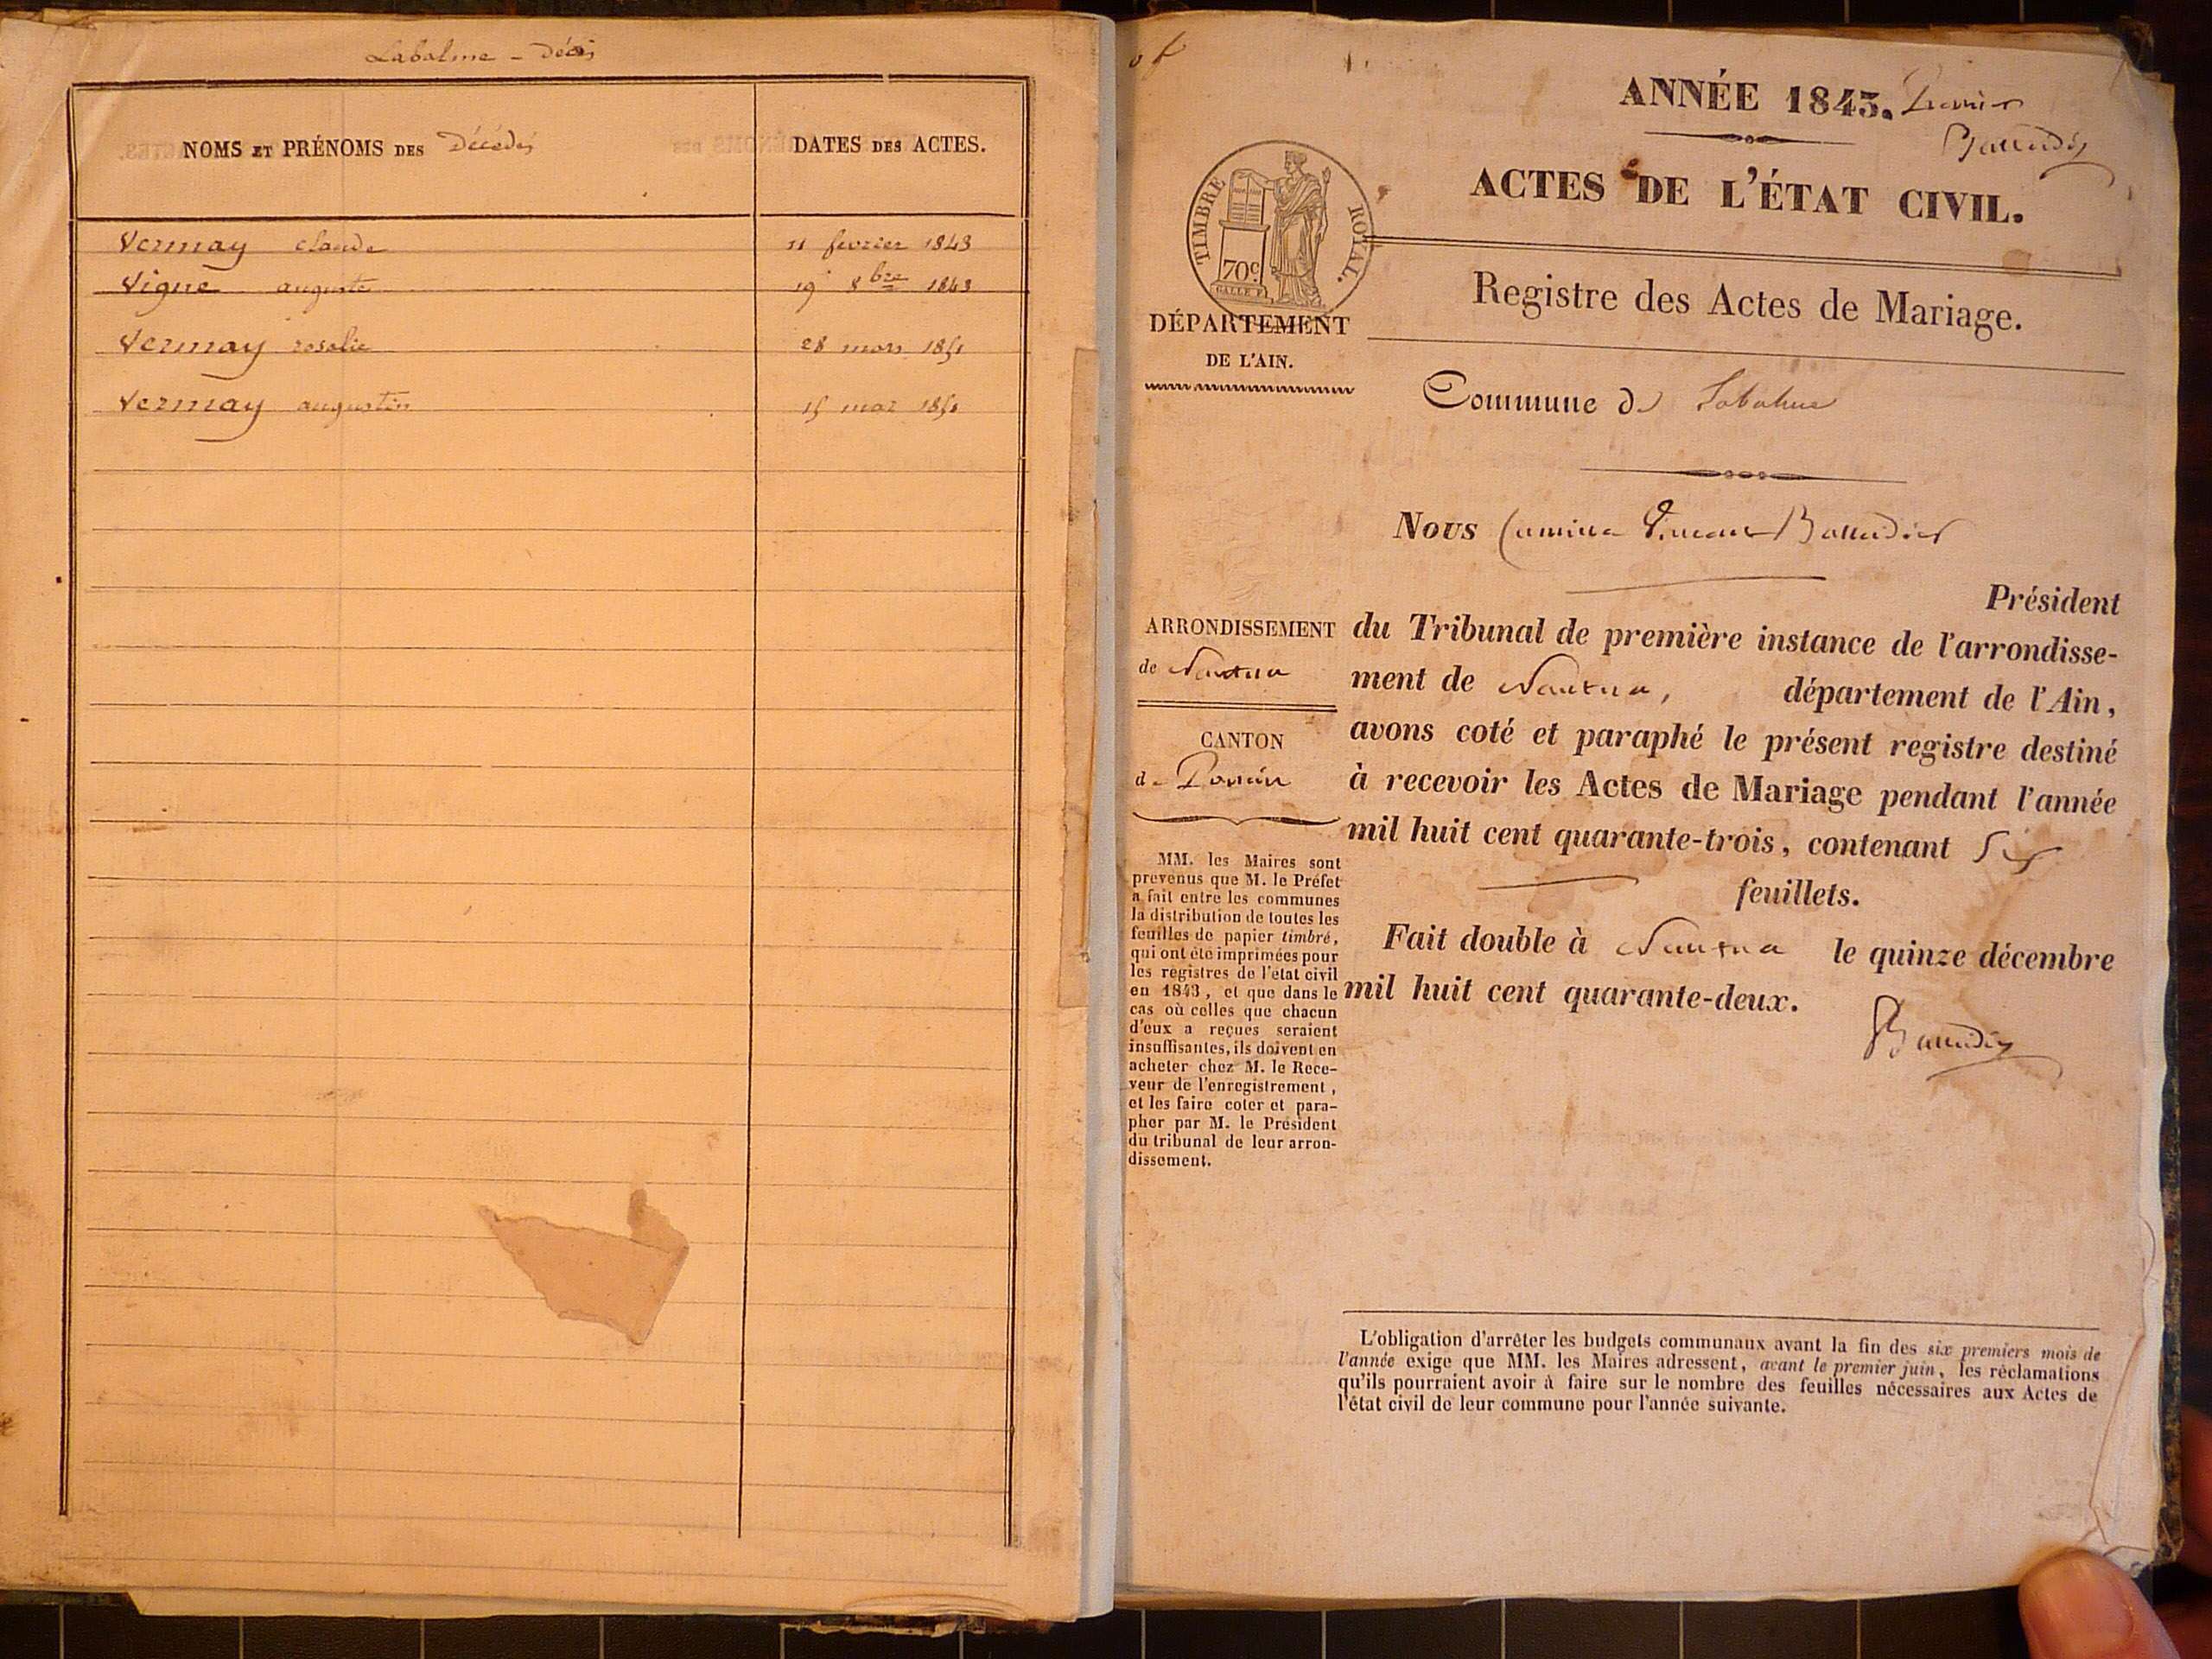 Labalme - Décès
NOMS ET PRÉNOMS DES Décédés
DATES DES ACTES.
Vernay claude 11 fevrier 1843
Vigne auguste 19 8bre 1843
Vernay rosalie 28 mars 1851
Vernay augustin 15 mai 185
ANNÉE 1843. Premier
Ballendier
ACTES DE L'ÉTAT CIVIL.
TIMBRE ROYAL.
70c.
Registre des Actes de Mariage.
DÉPARTEMENT
DE L'AIN.
Commune de Labalme
Nous Vincent
Président
ARRONDISSEMENT
de Nantua
CANTON
de Poncin
du Tribunal de première instance de l'arrondisse-
ment de Nantua, département de l'Ain,
avons coté et paraphé le présent registre destiné
à recevoir les Actes de Mariage pendant l'année
mil huit cent quarante-trois, contenant Six
feuillets.
Fait double à Nantua le quinze décembre
mil huit cent quarante-deux.
MM. les Maires sont
prévenus que M. le Préfet
a fait entre les communes
la distribution de toutes les
feuilles de papier timbré,
qui ont été imprimées pour
les registres de l'état civil
en 1843, et que dans le
cas où celles que chacun
d'eux a reçues seraient
insuffisantes, ils doivent en
acheter chez M. le Rece-
veur de l'enregistrement,
et les faire coter et para-
pher par M. le Président
du tribunal de leur arron-
dissement.
L'obligation d'arrêter les budgets communaux avant la fin des six premiers mois de
l'année exige que MM. les Maires adressent, avant le premier juin, les réclamations
qu'ils pourraient avoir à faire sur le nombre des feuilles nécessaires aux Actes de
l'état civil de leur commune pour l'année suivante.